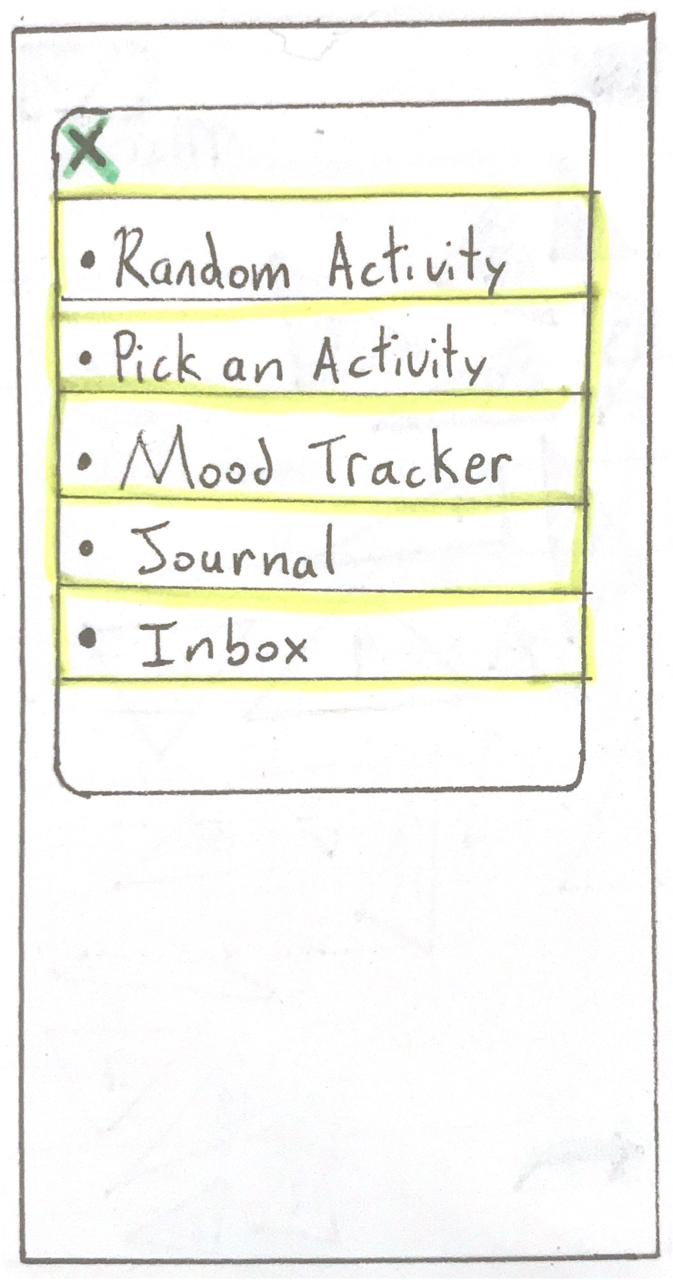 X
• Random Activity
• Pick an Activity
• Mood Tracker
• Journal
• Inbox